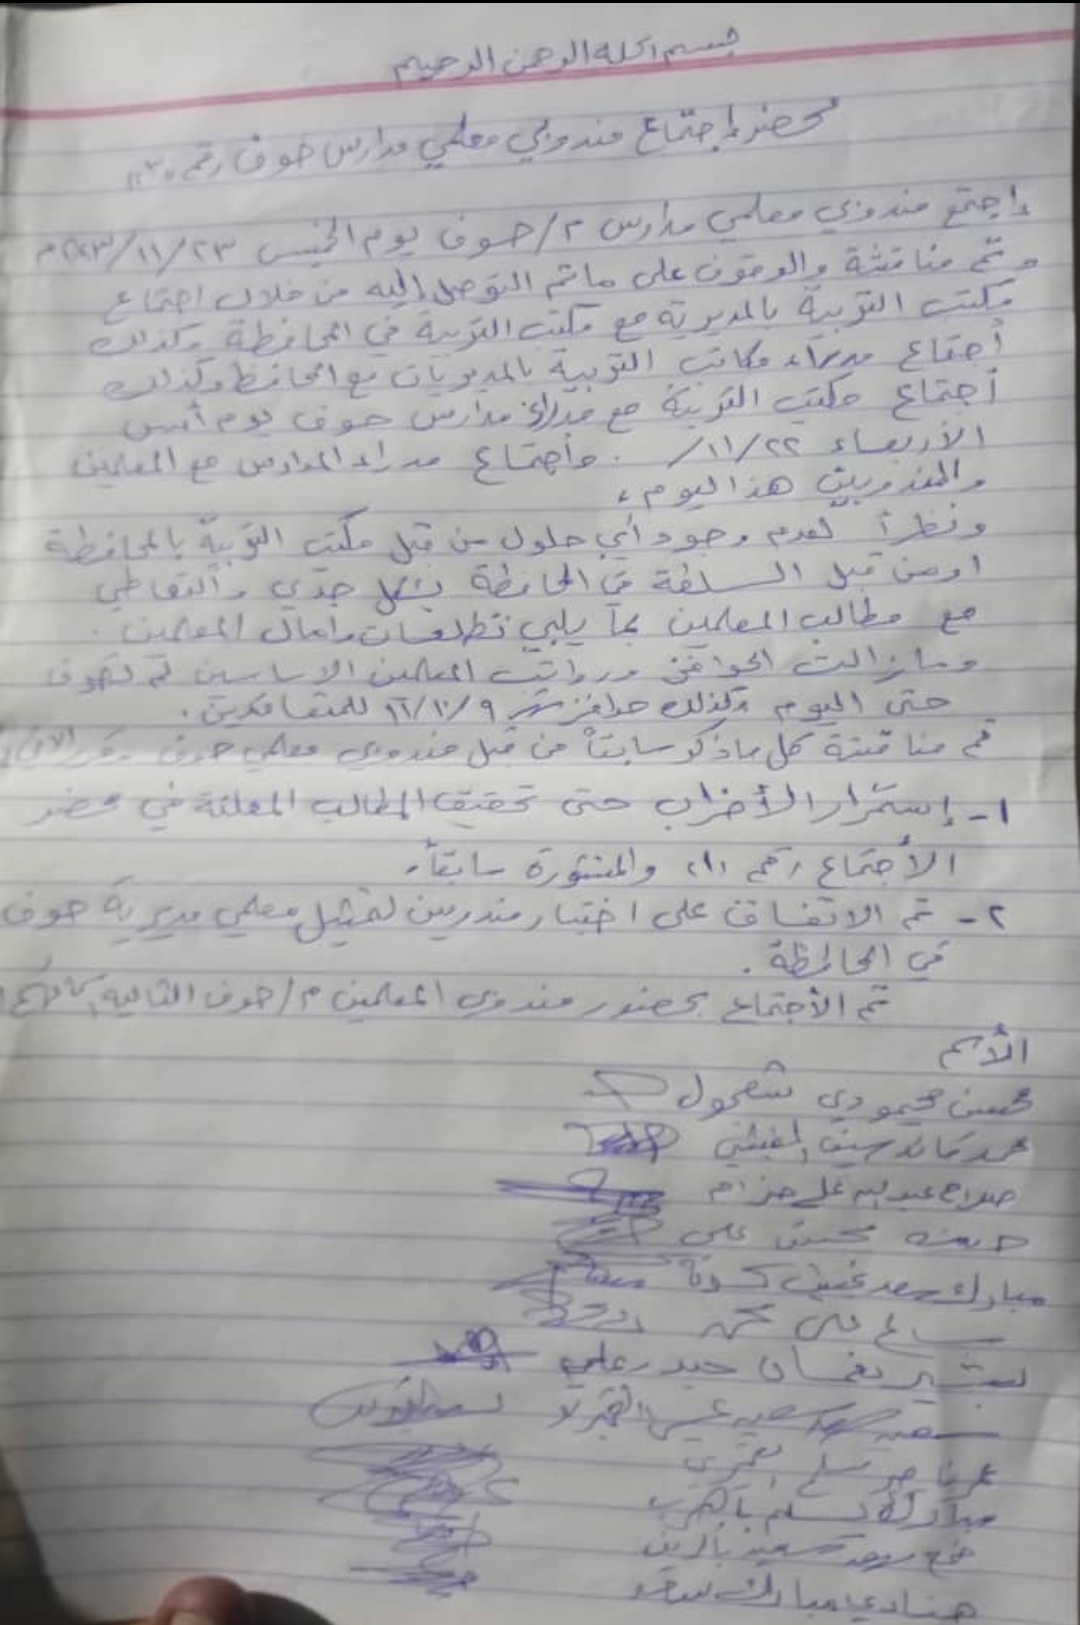 بسم الله الرحمن الرحيم
محضر إجتماع مندوبي معلمي مدارس حوف رقم "٣"
إجتمع مندوبي معلمي مدارس م/حوف يوم الخميس ٢٣/١١/٢٠٢٣م
وتم مناقشة والوقوف على ماتم التوصل إليه من خلال اجتماع
مكتب التربية بالمديرية مع مكتب التربية في المحافظة وكذلك
أجتماع مدراء مكاتب التربية بالمديريات مع المحافظ وكذلك
أجتماع مكتب التربية مع مدراء مدارس حوف يوم أمس
الأربعاء ٢٢/١١/ . وأجتماع مدراء المدارس مع المعلمين
والمندوبين هذا اليوم،
ونظراً لعدم وجود أي حلول من قبل مكتب التربية بالمحافظة
اومن قبل السلطة في المحافظة بشكل جدّي والتعاطي
مع مطالب المعلمين بما يلبي تطلعات وامال المعلمين .
ومازالت الحوافز ورواتب المعلمين الاساسين لم تصرف
حتى اليوم وكذلك حوافز شهر ٩/١٠/١١ للمتعاقدين .
تم مناقشة كل ماذكر سابقاً من قبل مندوبي معلمي حوف
١- إستمرار الأضراب حتى تحقيق المطالب المعلنة في محضر
الأجتماع رقم (١) والمنشورة سابقاً.
٢- تم الاتفاق على اختيار مندوبين لتمثيل معلمي مديرية حوف
في المحافظة .
تم الأجتماع بحضور مندوبي المعلمين م/حوف التاليه
الأسم
محسن محمودي شعحول
محمد قائد سيف
صلاح عبدالله علي حزام
محسن علي
مبارك سعد
سالم علي
بشير نعمان حيدر علي
سعيد
مسلم
مبارك مسلم
سعيد
هنادي مبارك سعد